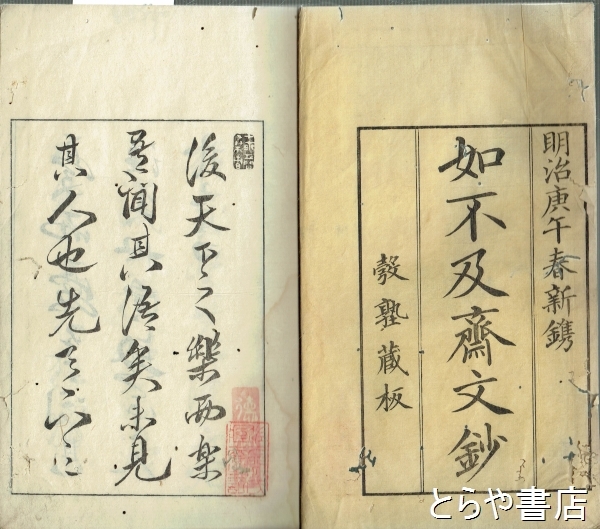 明治庚午春新鐫
如不及齋文鈔
塾藏板
後天下之樂而樂
吾聞其語矣未見
其人也先天下之
とらや書店